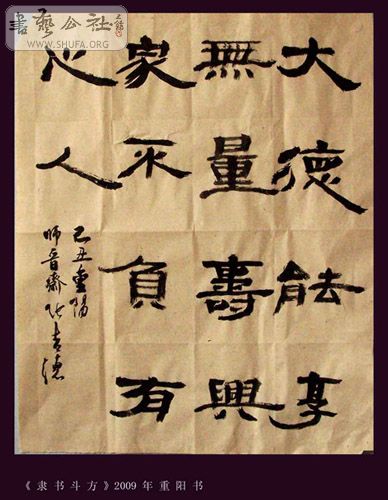 書藝公社
WWW.SHUFA.ORG
大德能享
無量壽興
家不負有
心人
己丑重陽
《隶书斗方》2009年重阳书